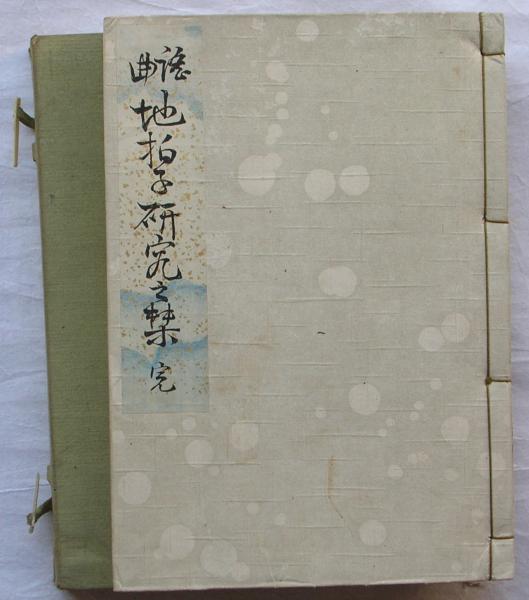 謡曲
地拍子研究之栞 完